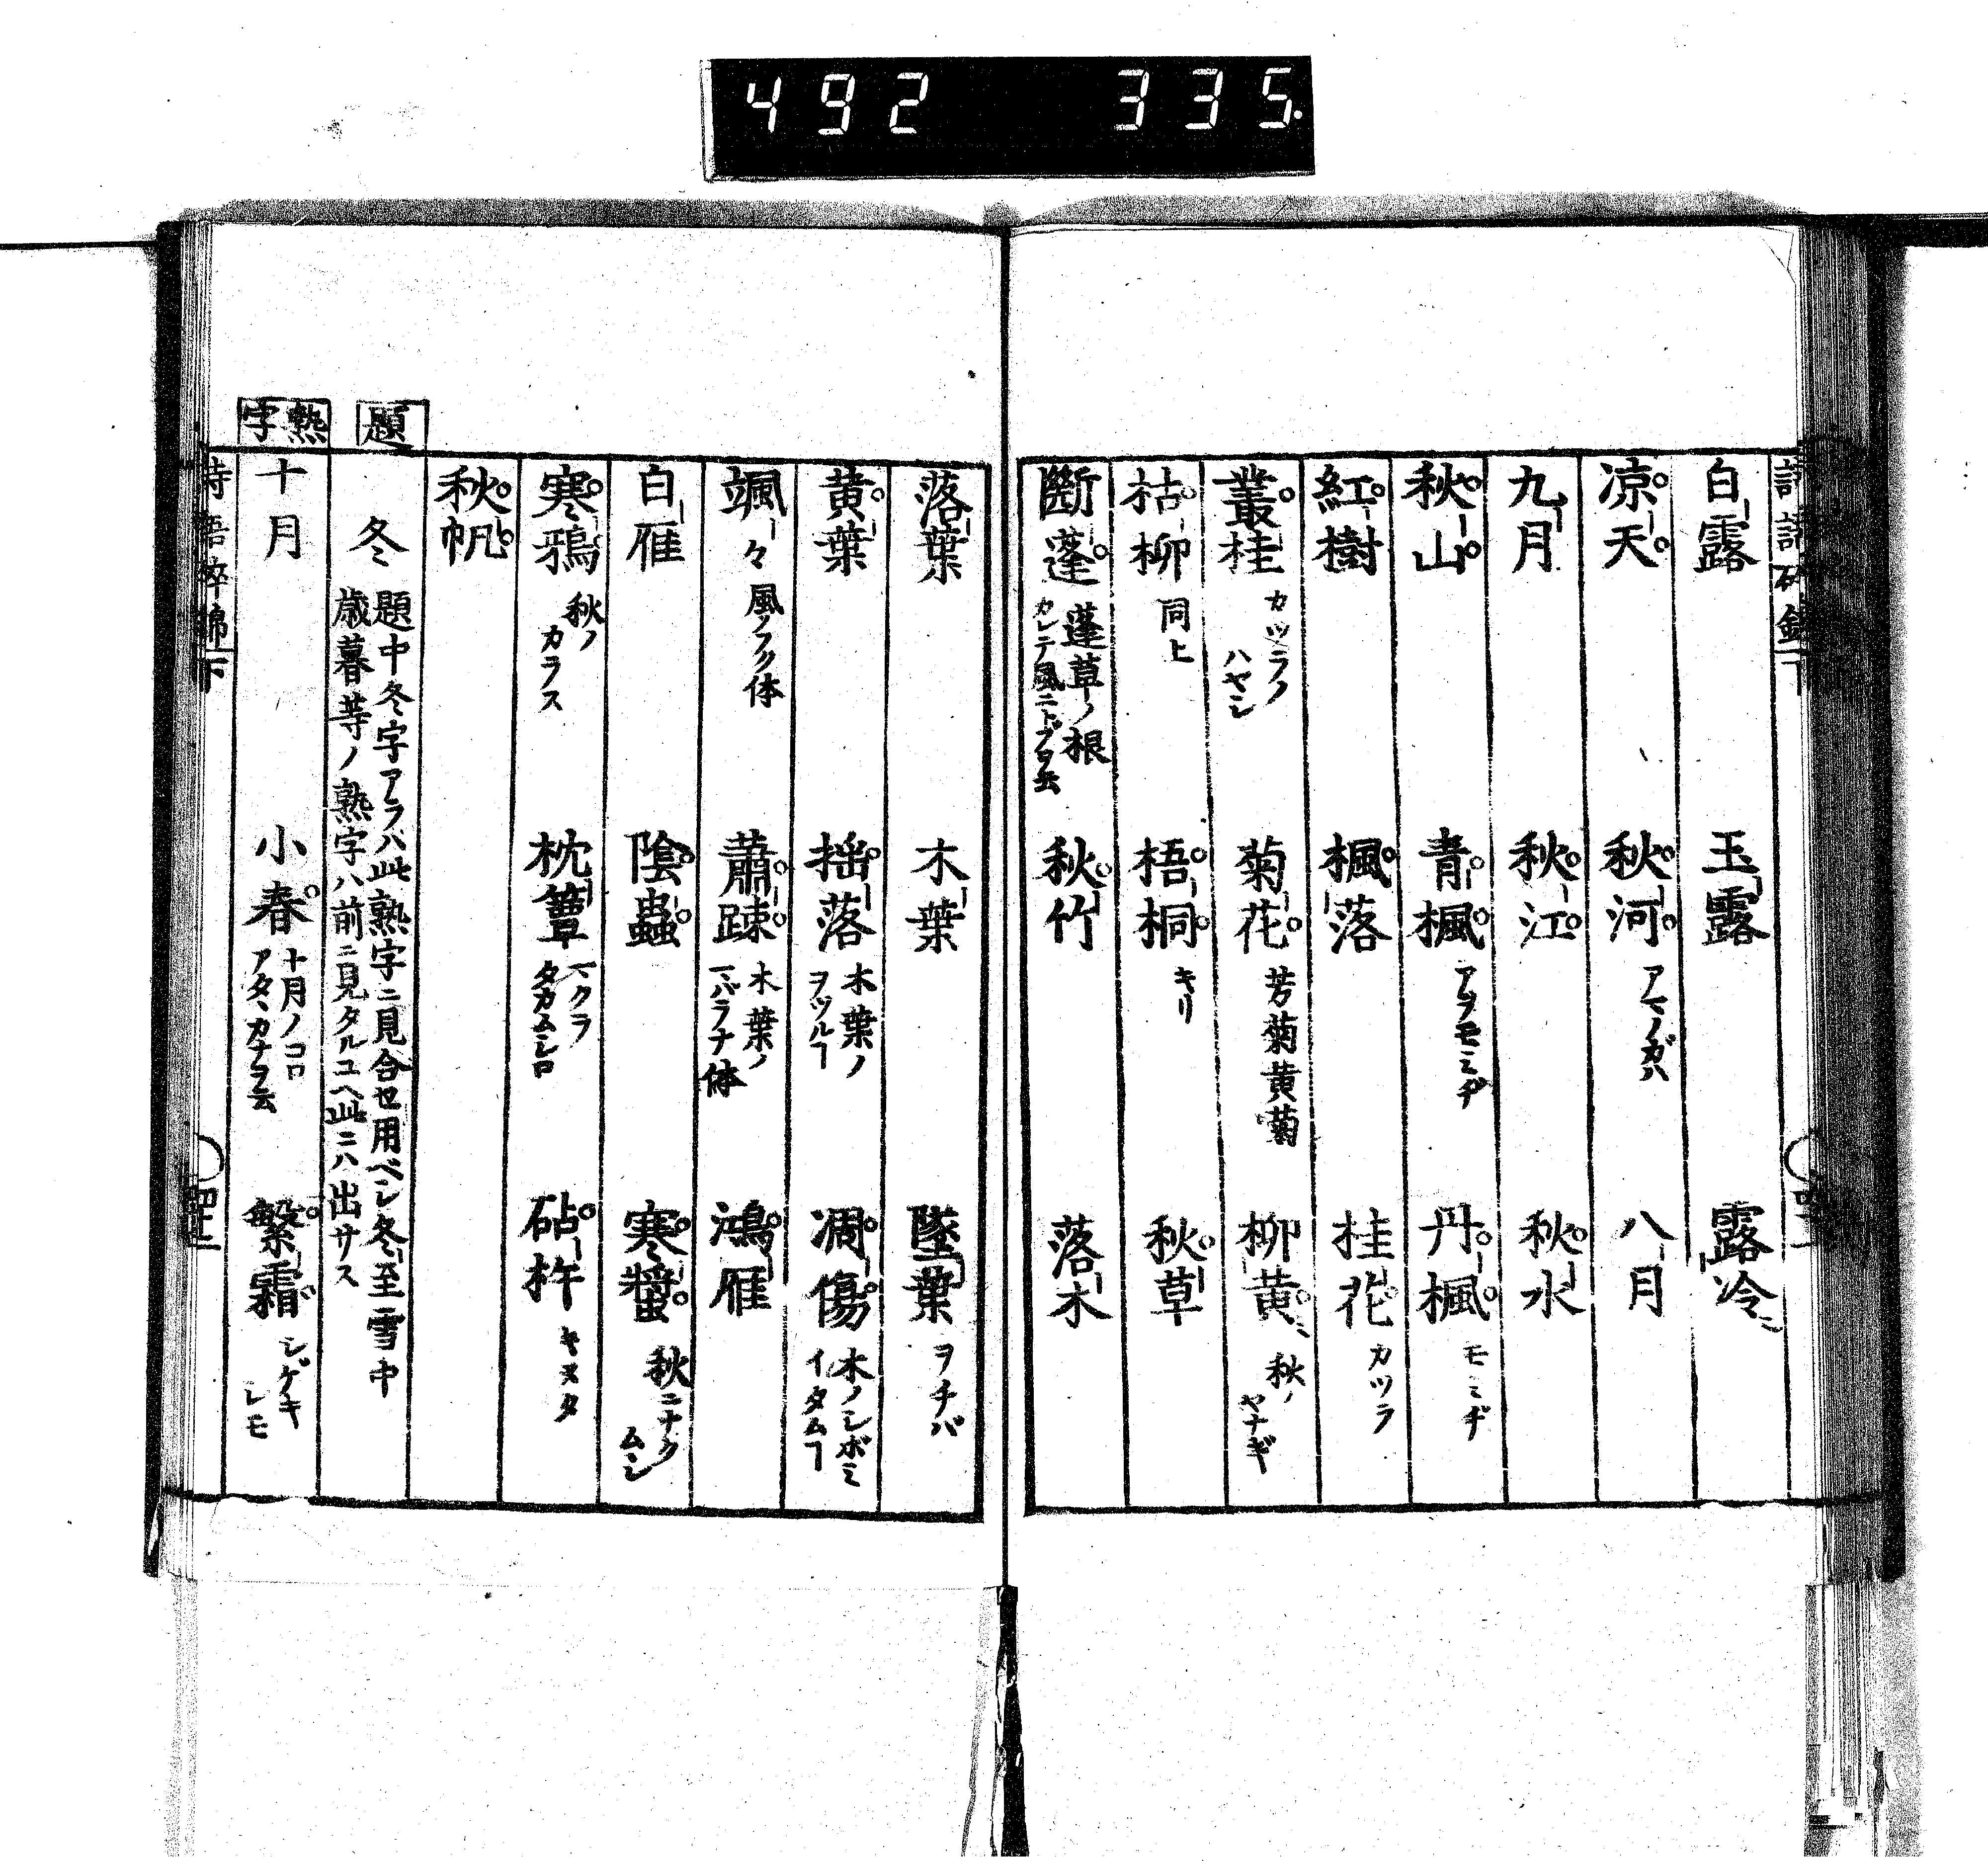 492 335.
白露 玉露 露冷
凉天 秋河 アマノガハ 八月
九月 秋江 秋水
秋山 青楓 アヲモミヂ 丹楓 モミヂ
紅樹 楓落 桂花 カツラ
叢桂 カツラノ ハヤシ 菊花 芳菊黄菊 柳黄 秋ノ ヤナギ
枯柳 同上 梧桐 キリ 秋草
斷蓬 蓬草ノ根 カレテ風ニトブヲ云 秋竹 落木
落葉 木葉 墜葉 ヲチバ
黄葉 揺落 木葉ノ ヲツルヿ 凋傷 木ノシボミ イタムヿ
颯々 風ノフク体 蕭踈 木葉ノ マバラナ体 鴻雁
白雁 陰蟲 寒螿 秋ニナク ムシ
寒鴉 秋ノ カラス 枕簟 マクラ タカムシロ 砧杵 キヌタ
秋帆
題
冬 題中冬字アラハ此熟字ニ見合セ用ベシ冬至雪中
歳暮等ノ熟字ハ前ニ見タルユヘ此ニハ出サス
熟字
十月 小春 十月ノコロ アタヽカナヲ云 繁霜 シゲキ シモ
詩語砕錦 下